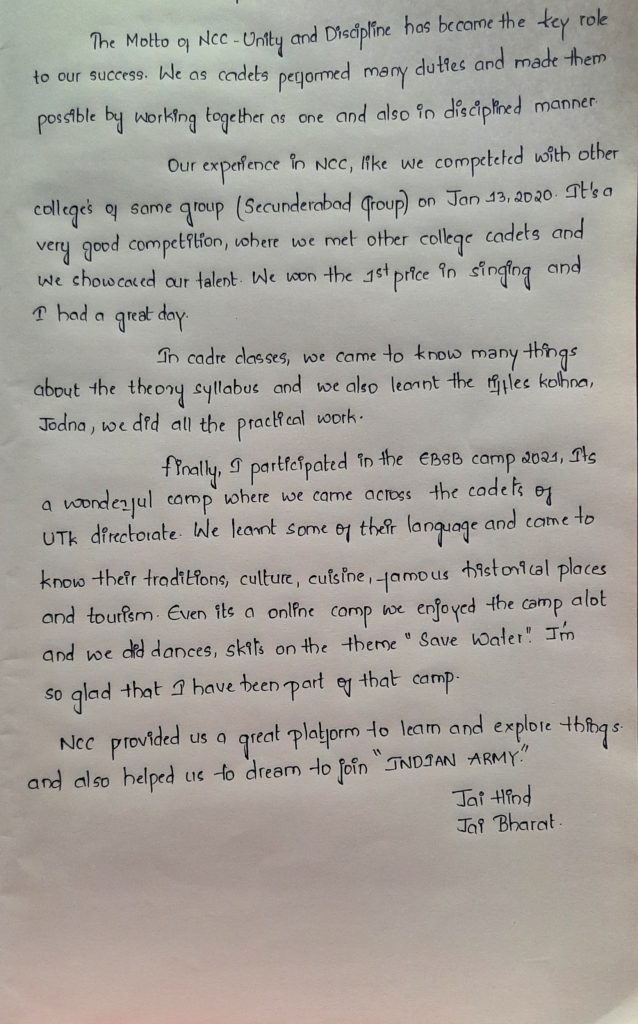 The Motto of NCC - Unity and Discipline has become the key role
to our success. We as cadets performed many duties and made them
possible by working together as one and also in disciplined manner.
Our experience in NCC, like we competeted with other
college's of same group (Secunderabad Group) on Jan 13, 2020. It's a
very good competition, where we met other college cadets and
we showcaced our talent. We won the 1st price in singing and
I had a great day.
In cadre classes, we came to know many things
about the theory syllabus and we also learnt the rifles kolhna,
Jodna, we did all the practical work.
finally, I participated in the EBSB camp 2021, Its
a wonderful camp where we came across the cadets of
UTK directorate. We learnt some of their language and came to
know their traditions, culture, cuisine, famous historical places
and tourism. Even its a online camp we enjoyed the camp alot
and we did dances, skits on the theme "Save Water". I'm
so glad that I have been part of that camp.
NCC provided us a great platform to learn and explore things.
and also helped us to dream to join "INDIAN ARMY."
Jai Hind
Jai Bharat.